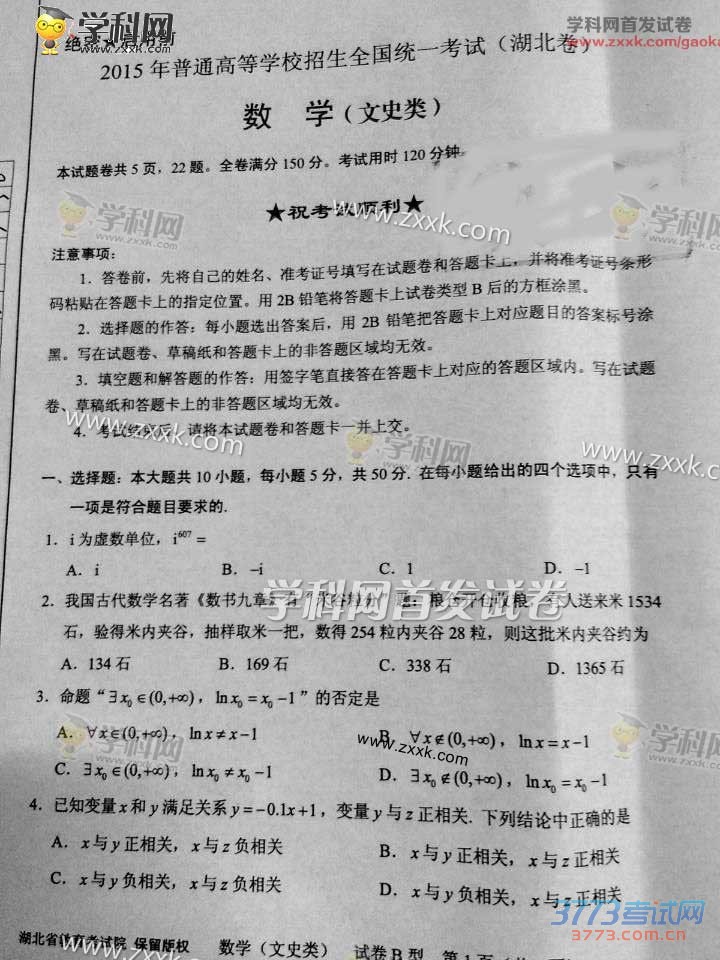 学科网
zxxk.com
学科网首发试卷
www.zxxk.com/gaoka
绝
2015 年普通高等学校招生全国统一考试（湖北卷）
数 学（文史类）
本试题卷共 5 页，22 题。全卷满分 150 分。考试用时 120 分钟
★祝考 顺利★
学科网
zxxk.com
www.zxxk.com
学科网
zxxk.com
注意事项：
1．答卷前，先将自己的姓名、准考证号填写在试题卷和答题卡上，并将准考证号条形
码粘贴在答题卡上的指定位置。用 2B 铅笔将答题卡上试卷类型 B 后的方框涂黑。
2．选择题的作答：每小题选出答案后，用 2B 铅笔把答题卡上对应题目的答案标号涂
黑。写在试题卷、草稿纸和答题卡上的非答题区域均无效。
3．填空题和解答题的作答：用签字笔直接答在答题卡上对应的答题区域内。写在试题
卷、草稿纸和答题卡上的非答题区域均无效。
4．考试结束后，请将本试题卷和答题卡一并上交。
www.zxxk.com
学科网
zxxk.com
www.zxxk.com
一、选择题：本大题共 10 小题，每小题 5 分，共 50 分．在每小题给出的四个选项中，只有
一项是符合题目要求的．
1．i 为虚数单位，i⁶⁰⁷ =
A．i B．−i C．1 D．−1
学科网首发试卷
2．我国古代数学名著《数书九章》有 题：粮仓开仓收粮， 人送来米 1534
石，验得米内夹谷，抽样取米一把，数得 254 粒内夹谷 28 粒，则这批米内夹谷约为
A．134 石 B．169 石 C．338 石 D．1365 石
3．命题“∃x₀∈(0,+∞)，ln x₀ = x₀ −1”的否定是
A．∀x∈(0,+∞)，ln x ≠ x−1 B．∀x∉(0,+∞)，ln x = x−1
C．∃x₀∈(0,+∞)，ln x₀ ≠ x₀ −1 D．∃x₀∉(0,+∞)，ln x₀ = x₀ −1
学科网
zxxk.com
www.zxxk.com
学科网
zxxk.com
4．已知变量 x 和 y 满足关系 y = −0.1x+1，变量 y 与 z 正相关．下列结论中正确的是
A．x 与 y 正相关，x 与 z 负相关 B．x 与 y 正相关，x 与 z 正相关
C．x 与 y 负相关，x 与 z 负相关 D．x 与 y 负相关，x 与 z 正相关
3773考试网
3773.com.cn
湖北省教育考试院 保留版权 数学（文史类） 试卷 B 型 第 1 页